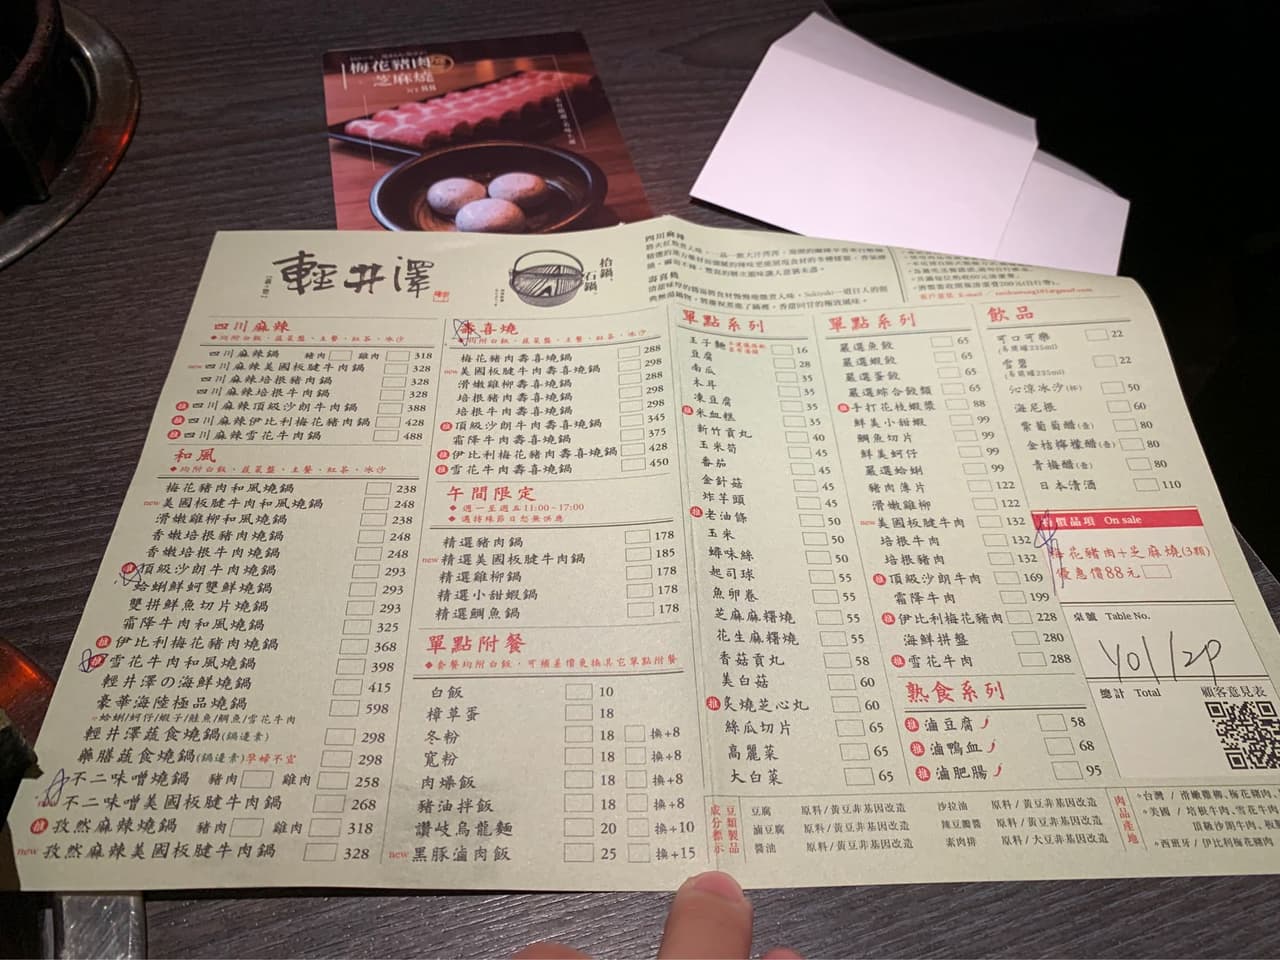 梅花豬肉
芝麻燒
輕井澤
拾鍋
石鍋
四川麻辣
壽喜燒
四川麻辣
均附白飯、蔬菜盤、主餐、紅茶、冰沙
四川麻辣鍋 豬肉 雞肉 318
new 四川麻辣美國板腱牛肉鍋 328
四川麻辣培根豬肉鍋 328
四川麻辣培根牛肉鍋 328
推 四川麻辣頂級沙朗牛肉鍋 388
推 四川麻辣伊比利梅花豬肉鍋 428
推 四川麻辣雪花牛肉鍋 488
和風
均附白飯、蔬菜盤、主餐、紅茶、冰沙
梅花豬肉和風燒鍋 238
new 美國板腱牛肉和風燒鍋 248
滑嫩雞柳和風燒鍋 238
香嫩培根豬肉燒鍋 248
香嫩培根牛肉燒鍋 248
推 頂級沙朗牛肉燒鍋 293
蛤蜊鮮蚵雙鮮燒鍋 293
雙拼鮮魚切片燒鍋 293
霜降牛肉和風燒鍋 325
推 伊比利梅花豬肉燒鍋 368
推 雪花牛肉和風燒鍋 398
輕井澤の海鮮燒鍋 415
豪華海陸極品燒鍋 598
蛤蜊/蚵仔/蝦子/鮭魚/鯛魚/雪花牛肉
輕井澤蔬食燒鍋(鍋邊素) 298
藥膳蔬食燒鍋(鍋邊素)孕婦不宜 298
不二味噌燒鍋 豬肉 雞肉 258
不二味噌美國板腱牛肉鍋 268
推 孜然麻辣燒鍋 豬肉 雞肉 318
new 孜然麻辣美國板腱牛肉鍋 328
壽喜燒
均附白飯、蔬菜盤、主餐、紅茶、冰沙
梅花豬肉壽喜燒鍋 288
new 美國板腱牛肉壽喜燒鍋 298
滑嫩雞柳壽喜燒鍋 288
培根豬肉壽喜燒鍋 298
培根牛肉壽喜燒鍋 298
推 頂級沙朗牛肉壽喜燒鍋 345
霜降牛肉壽喜燒鍋 375
推 伊比利梅花豬肉壽喜燒鍋 428
推 雪花牛肉壽喜燒鍋 450
午間限定
週一至週五11:00~17:00
遇特殊節日恕無供應
精選豬肉鍋 178
new 精選美國板腱牛肉鍋 185
精選雞柳鍋 178
精選小甜蝦鍋 178
精選鯛魚鍋 178
單點附餐
套餐均附白飯，可補差價更換其它單點附餐
白飯 10
樟草蛋 18
冬粉 18 換+8
寬粉 18 換+8
肉燥飯 18 換+8
豬油拌飯 18 換+8
讚岐烏龍麵 20 換+10
new 黑豚滷肉飯 25 換+15
單點系列
王子麵 16
豆腐 28
南瓜 35
木耳 35
凍豆腐 35
推 米血糕 35
新竹貢丸 40
玉米筍 45
番茄 45
金針菇 45
炸芋頭 45
推 老油條 50
玉米 50
蟳味絲 50
起司球 55
魚卵卷 55
芝麻麻糬燒 55
花生麻糬燒 55
香菇貢丸 58
美白菇 60
推 炙燒芝心丸 60
絲瓜切片 65
高麗菜 65
大白菜 65
單點系列
嚴選魚餃 65
嚴選蝦餃 65
嚴選蛋餃 65
嚴選綜合餃類 65
推 手打花枝蝦漿 88
鮮美小甜蝦 99
鯛魚切片 99
鮮美蚵仔 99
嚴選蛤蜊 99
豬肉薄片 122
滑嫩雞柳 122
new 美國板腱牛肉 132
培根牛肉 132
培根豬肉 132
推 頂級沙朗牛肉 169
霜降牛肉 199
推 伊比利梅花豬肉 228
海鮮拼盤 280
推 雪花牛肉 288
熟食系列
推 滷豆腐 58
推 滷鴨血 68
推 滷肥腸 95
飲品
可口可樂 22
(易開罐235ml)
雪碧 22
(易開罐235ml)
沁涼冰沙(杯) 50
海尼根 60
紫葡萄醋(壺) 80
金桔檸檬醋(壺) 80
青梅醋(壺) 80
日本清酒 110
特價品項 On sale
梅花豬肉+芝麻燒(3顆)
優惠價88元
桌號 Table No.
Y01/2P
總計 Total 顧客意見表
豆類製品
成分標示
豆腐 原料/黃豆非基因改造 沙拉油 原料/黃豆非基因改造
滷豆腐 原料/黃豆非基因改造 辣豆瓣醬 原料/黃豆非基因改造
醬油 原料/黃豆非基因改造 素肉排 原料/大豆非基因改造
肉品產地
台灣/滑嫩雞柳、梅花豬肉、
美國/培根牛肉、雪花牛肉
頂級沙朗牛肉、板
西班牙/伊比利梅花豬肉